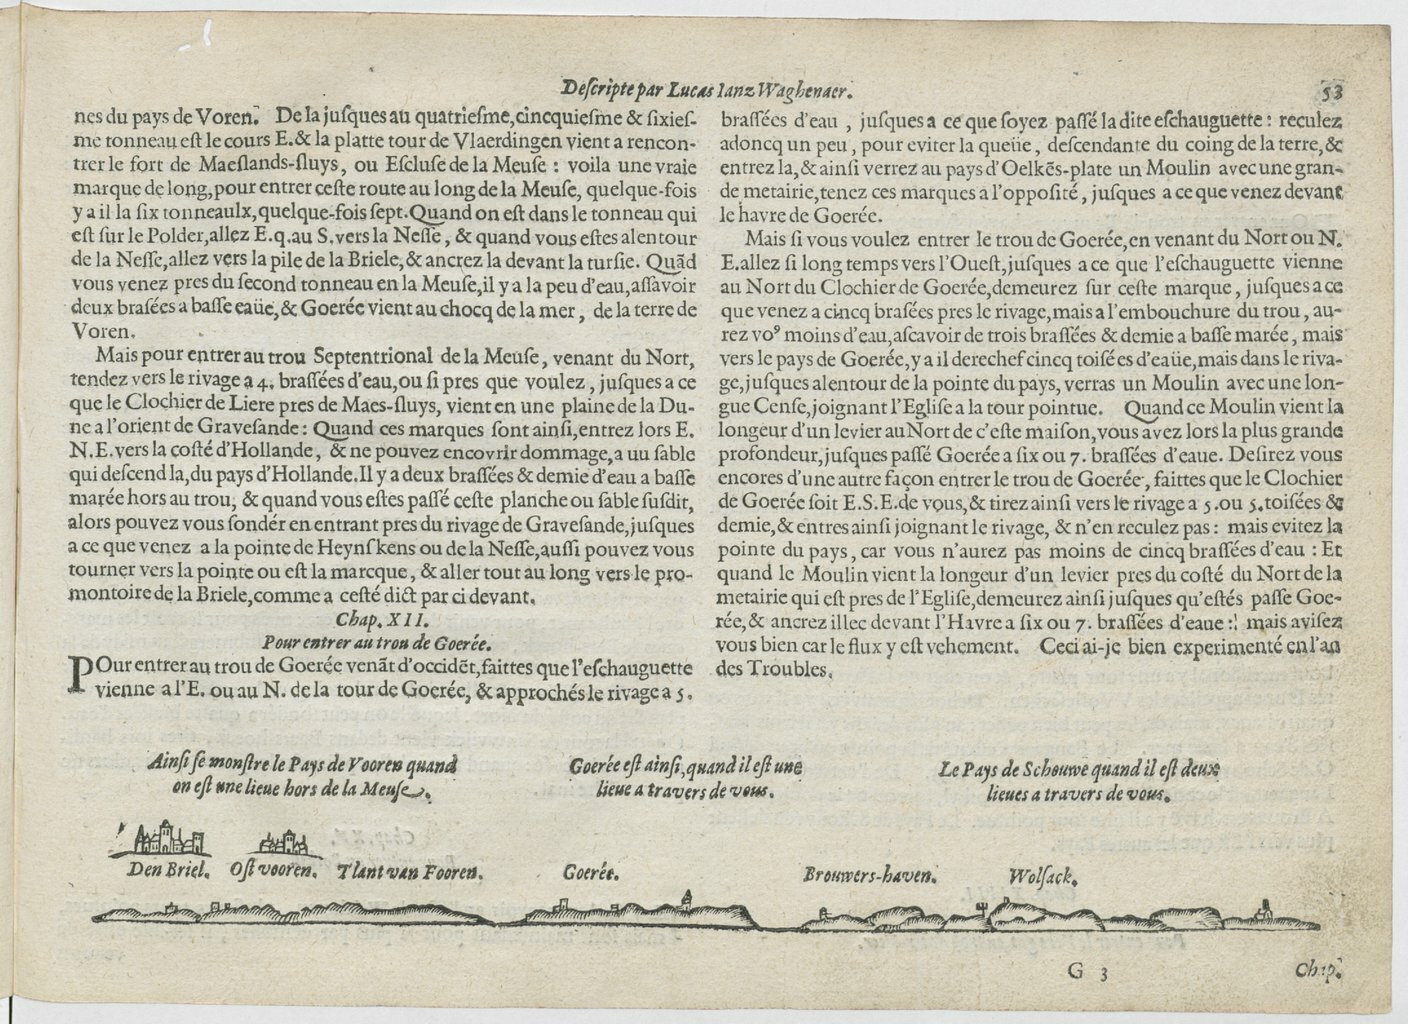 Descripte par Lucas Ianz Waghenaer.
53
nes du pays de Voren. De la jusques au quatriesme, cincquiesme & sixies-
me tonneau est le cours E. & la platte tour de Vlaerdingen vient a rencon-
trer le fort de Maeslands-sluys, ou Escluse de la Meuse : voila une vraie
marque de long, pour entrer ceste route au long de la Meuse, quelque-fois
y a il la six tonneaulx, quelque-fois sept. Quand on est dans le tonneau qui
est sur le Polder, allez E. q. au S. vers la Nesse, & quand vous estes alentour
de la Nesse, allez vers la pile de la Briele, & ancrez la devant la tursie. Quãd
vous venez pres du second tonneau en la Meuse, il y a la peu d'eau, assavoir
deux brasées a basse eaüe, & Goerée vient au chocq de la mer, de la terre de
Voren.
Mais pour entrer au trou Septentrional de la Meuse, venant du Nort,
tendez vers le rivage a 4. brassées d'eau, ou si pres que voulez, jusques a ce
que le Clochier de Liere pres de Maes-sluys, vient en une plaine de la Du-
ne a l'orient de Gravesande : Quand ces marques sont ainsi, entrez lors E.
N.E. vers la costé d'Hollande, & ne pouvez encovrir dommage, a uu sable
qui descend la, du pays d'Hollande. Il y a deux brassées & demie d'eau a basse
marée hors au trou, & quand vous estes passé ceste planche ou sable susdit,
alors pouvez vous sondér en entrant pres du rivage de Gravesande, jusques
a ce que venez a la pointe de Heynskens ou de la Nesse, aussi pouvez vous
tourner vers la pointe ou est la marcque, & aller tout au long vers le pro-
montoire de la Briele, comme a cesté dict par ci devant.
Chap. XII.
Pour entrer au trou de Goerée.
POur entrer au trou de Goerée venãt d'occidẽt, faittes que l'eschauguette
vienne a l'E. ou au N. de la tour de Goerée, & approchés le rivage a 5.
brassées d'eau, jusques a ce que soyez passé la dite eschauguette : reculez
adoncq un peu, pour eviter la queüe, descendante du coing de la terre, &
entrez la, & ainsi verrez au pays d'Oelkẽs-plate un Moulin avec une gran-
de metairie, tenez ces marques a l'opposité, jusques a ce que venez devant
le havre de Goerée.
Mais si vous voulez entrer le trou de Goerée, en venant du Nort ou N.
E. allez si long temps vers l'Ouest, jusques a ce que l'eschauguette vienne
au Nort du Clochier de Goerée, demeurez sur ceste marque, jusques a ce
que venez a cincq brasées pres le rivage, mais a l'embouchure du trou, au-
rez voꝰ moins d'eau, ascavoir de trois brassées & demie a basse marée, mais
vers le pays de Goerée, y a il derechef cincq toisées d'eaüe, mais dans le riva-
ge, jusques alentour de la pointe du pays, verras un Moulin avec une lon-
gue Cense, joignant l'Eglise a la tour pointue. Quand ce Moulin vient la
longeur d'un levier au Nort de c'este maison, vous avez lors la plus grande
profondeur, jusques passé Goerée a six ou 7. brassées d'eaue. Desirez vous
encores d'une autre façon entrer le trou de Goerée, faittes que le Clochier
de Goerée soit E.S.E. de vous, & tirez ainsi vers le rivage a 5. ou 5. toisées &
demie, & entres ainsi joignant le rivage, & n'en reculez pas : mais evitez la
pointe du pays, car vous n'aurez pas moins de cincq brassées d'eau : Et
quand le Moulin vient la longeur d'un levier pres du costé du Nort de la
metairie qui est pres de l'Eglise, demeurez ainsi jusques qu'estés passe Goe-
rée, & ancrez illec devant l'Havre a six ou 7. brassées d'eaue : mais avisez
vous bien car le flux y est vehement. Ceci ai-je bien experimenté en l'an
des Troubles.
Ainsi se monstre le Pays de Vooren quand
on est une lieue hors de la Meuse.
Goerée est ainsi, quand il est une
lieue a travers de vous.
Le Pays de Schouwe quand il est deux
lieues a travers de vous.
Den Briel. Ost vooren. Tlant van Fooren. Goerée. Brouwers-haven. Wolsack.
G 3
Chap.